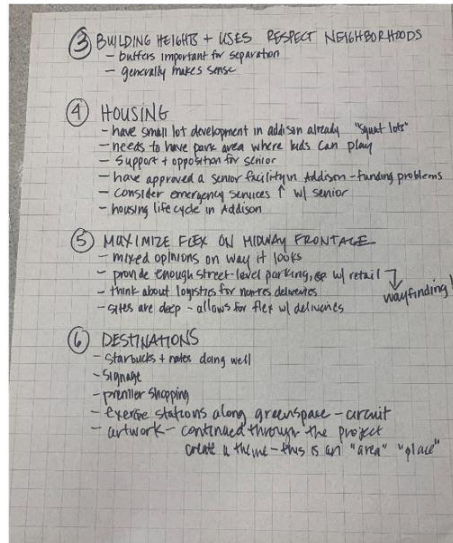 ③ BUILDING HEIGHTS + USES RESPECT NEIGHBORHOODS
- buffers important for separation
- generally makes sense
④ HOUSING
- have small lot development in addison already "squat lots"
- needs to have park area where kids can play
- Support + opposition for senior
- have approved a senior facility in Addison - funding problems
- consider emergency services ↑ w/ senior
- housing life cycle in Addison
⑤ MAXIMIZE FLEX ON MIDWAY FRONTAGE
- mixed opinions on way it looks
- provide enough street-level parking, w/ retail
wayfinding!
- think about logistics for non-res deliveries
- sites are deep - allows for flex w/ deliveries
⑥ DESTINATIONS
- Starbucks + nates doing well
- Signage
- premier shopping
- exercise stations along greenspace - circuit
- artwork - continued through the project
create a theme - this is an "area" "place"